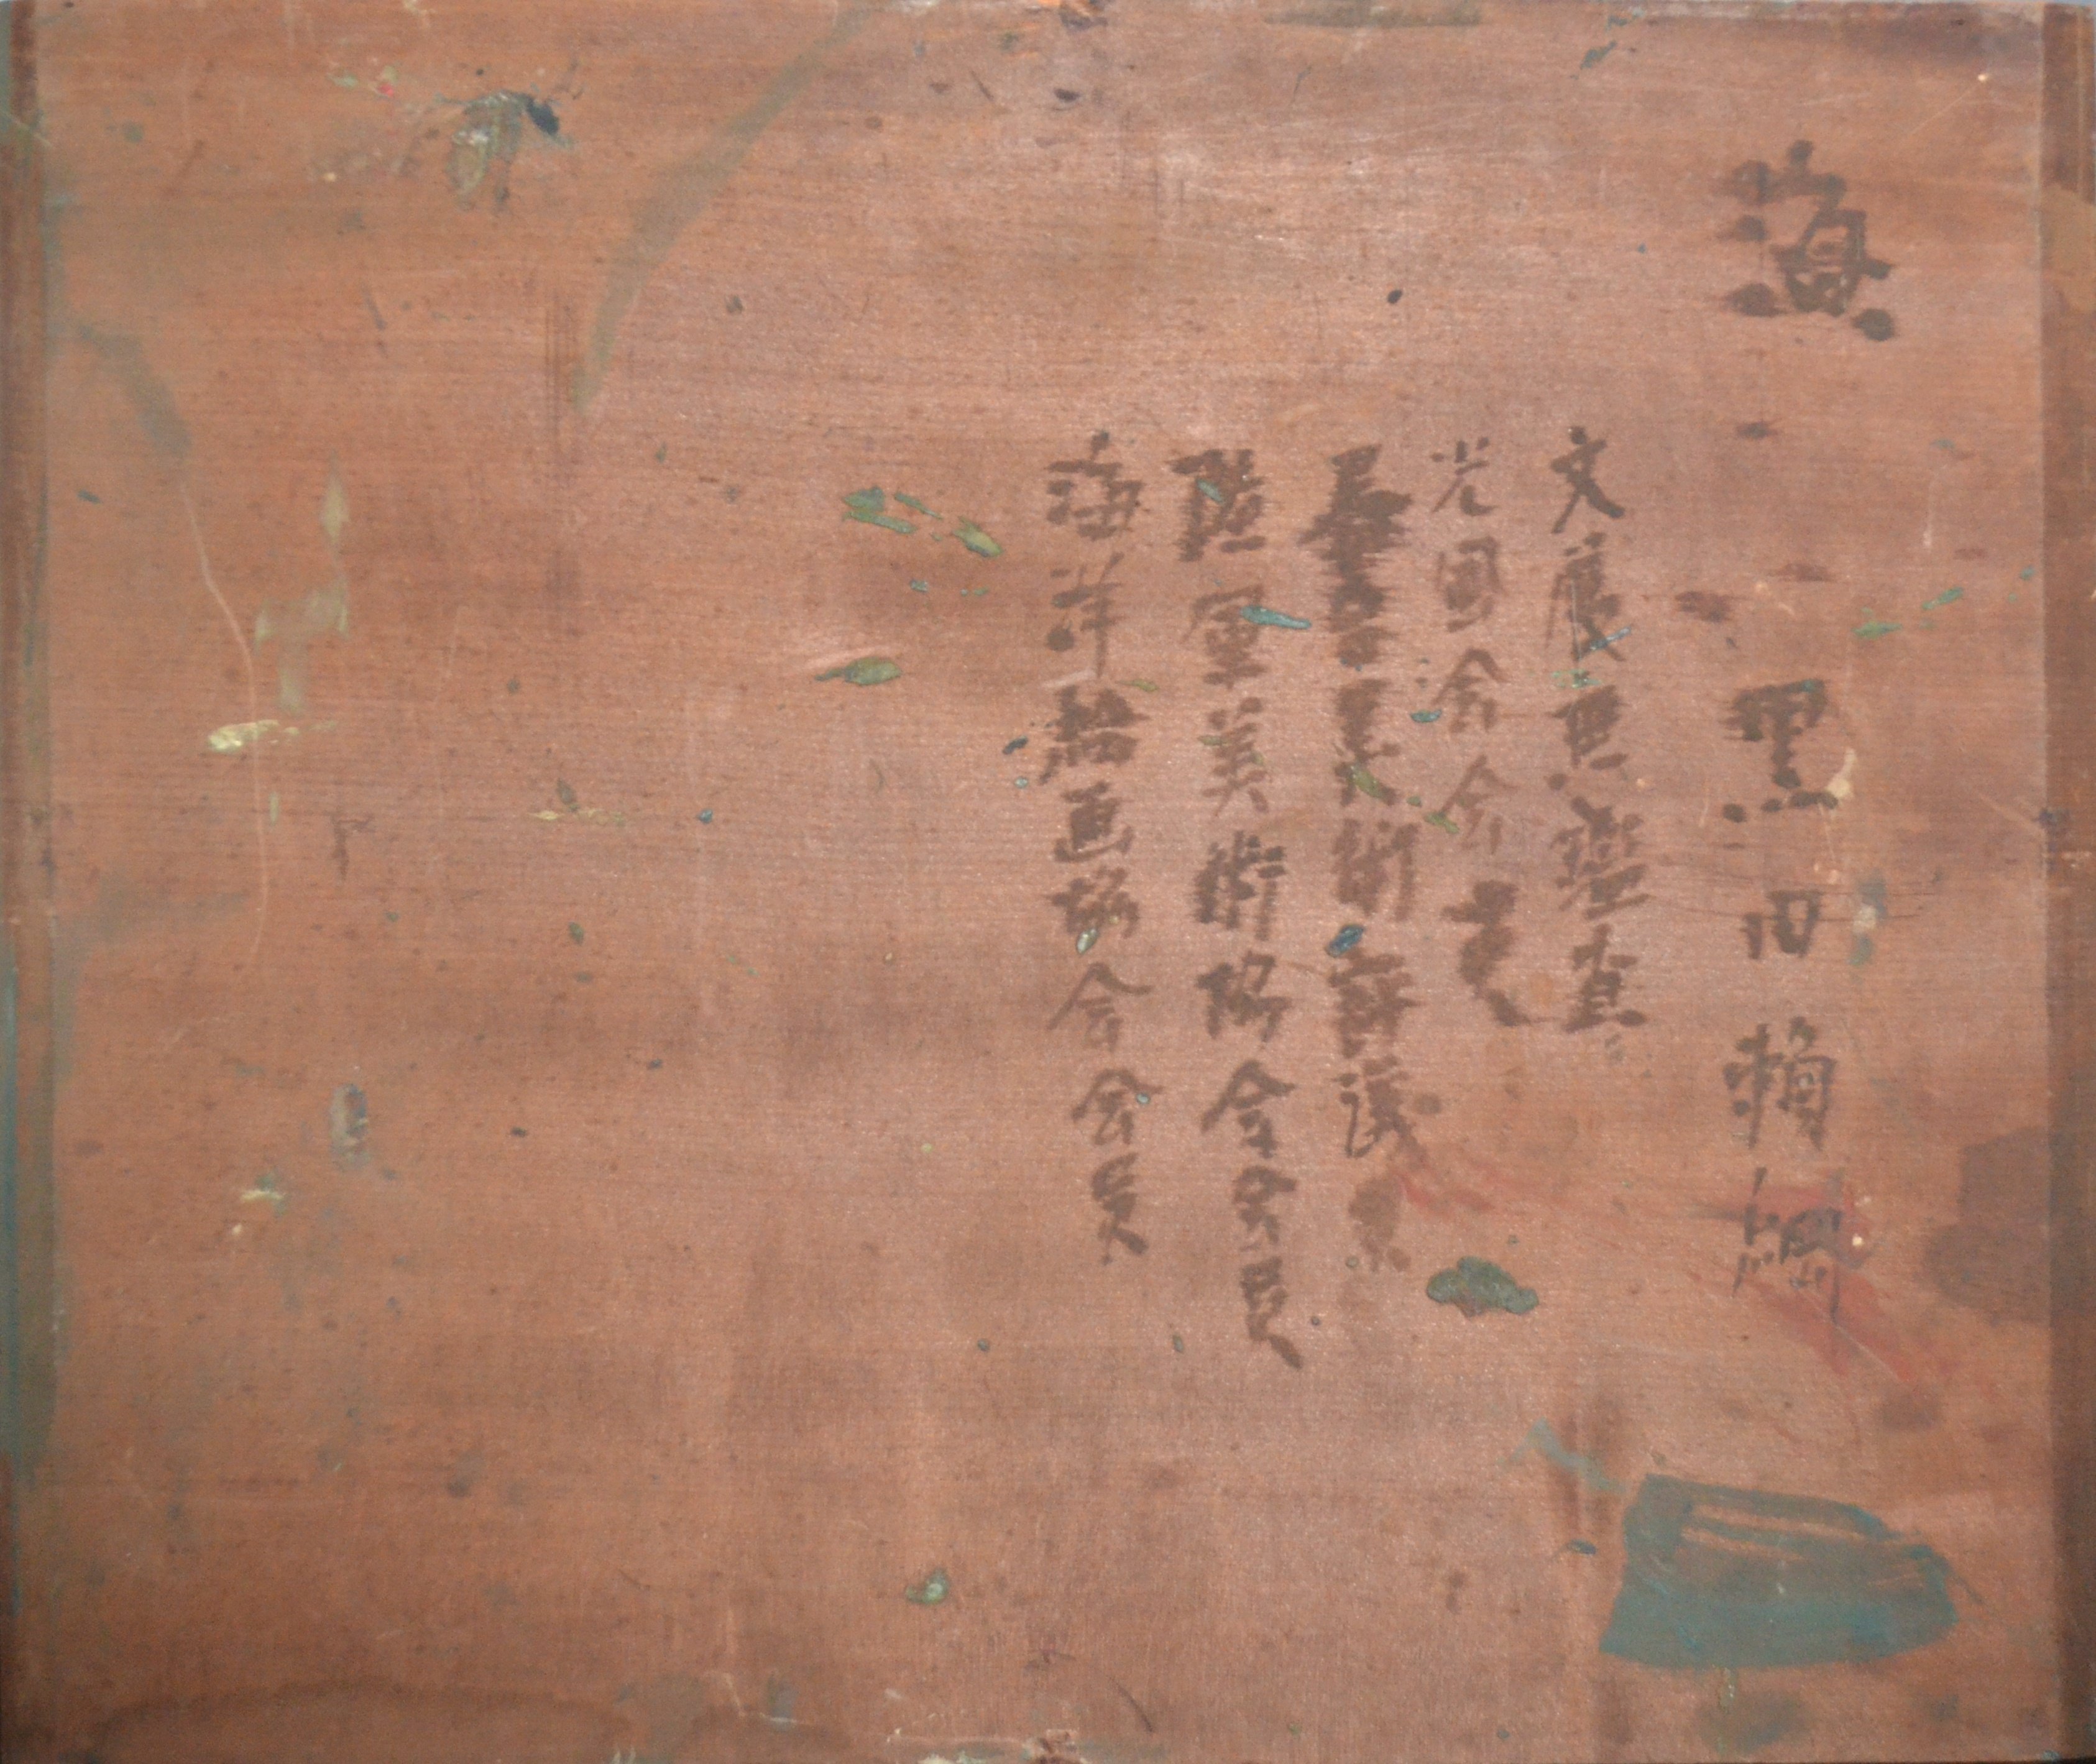 海
黒田頼綱
文展無鑑査
光風会会員
美術評議員
陸軍美術協会会員
海洋絵画協会会員